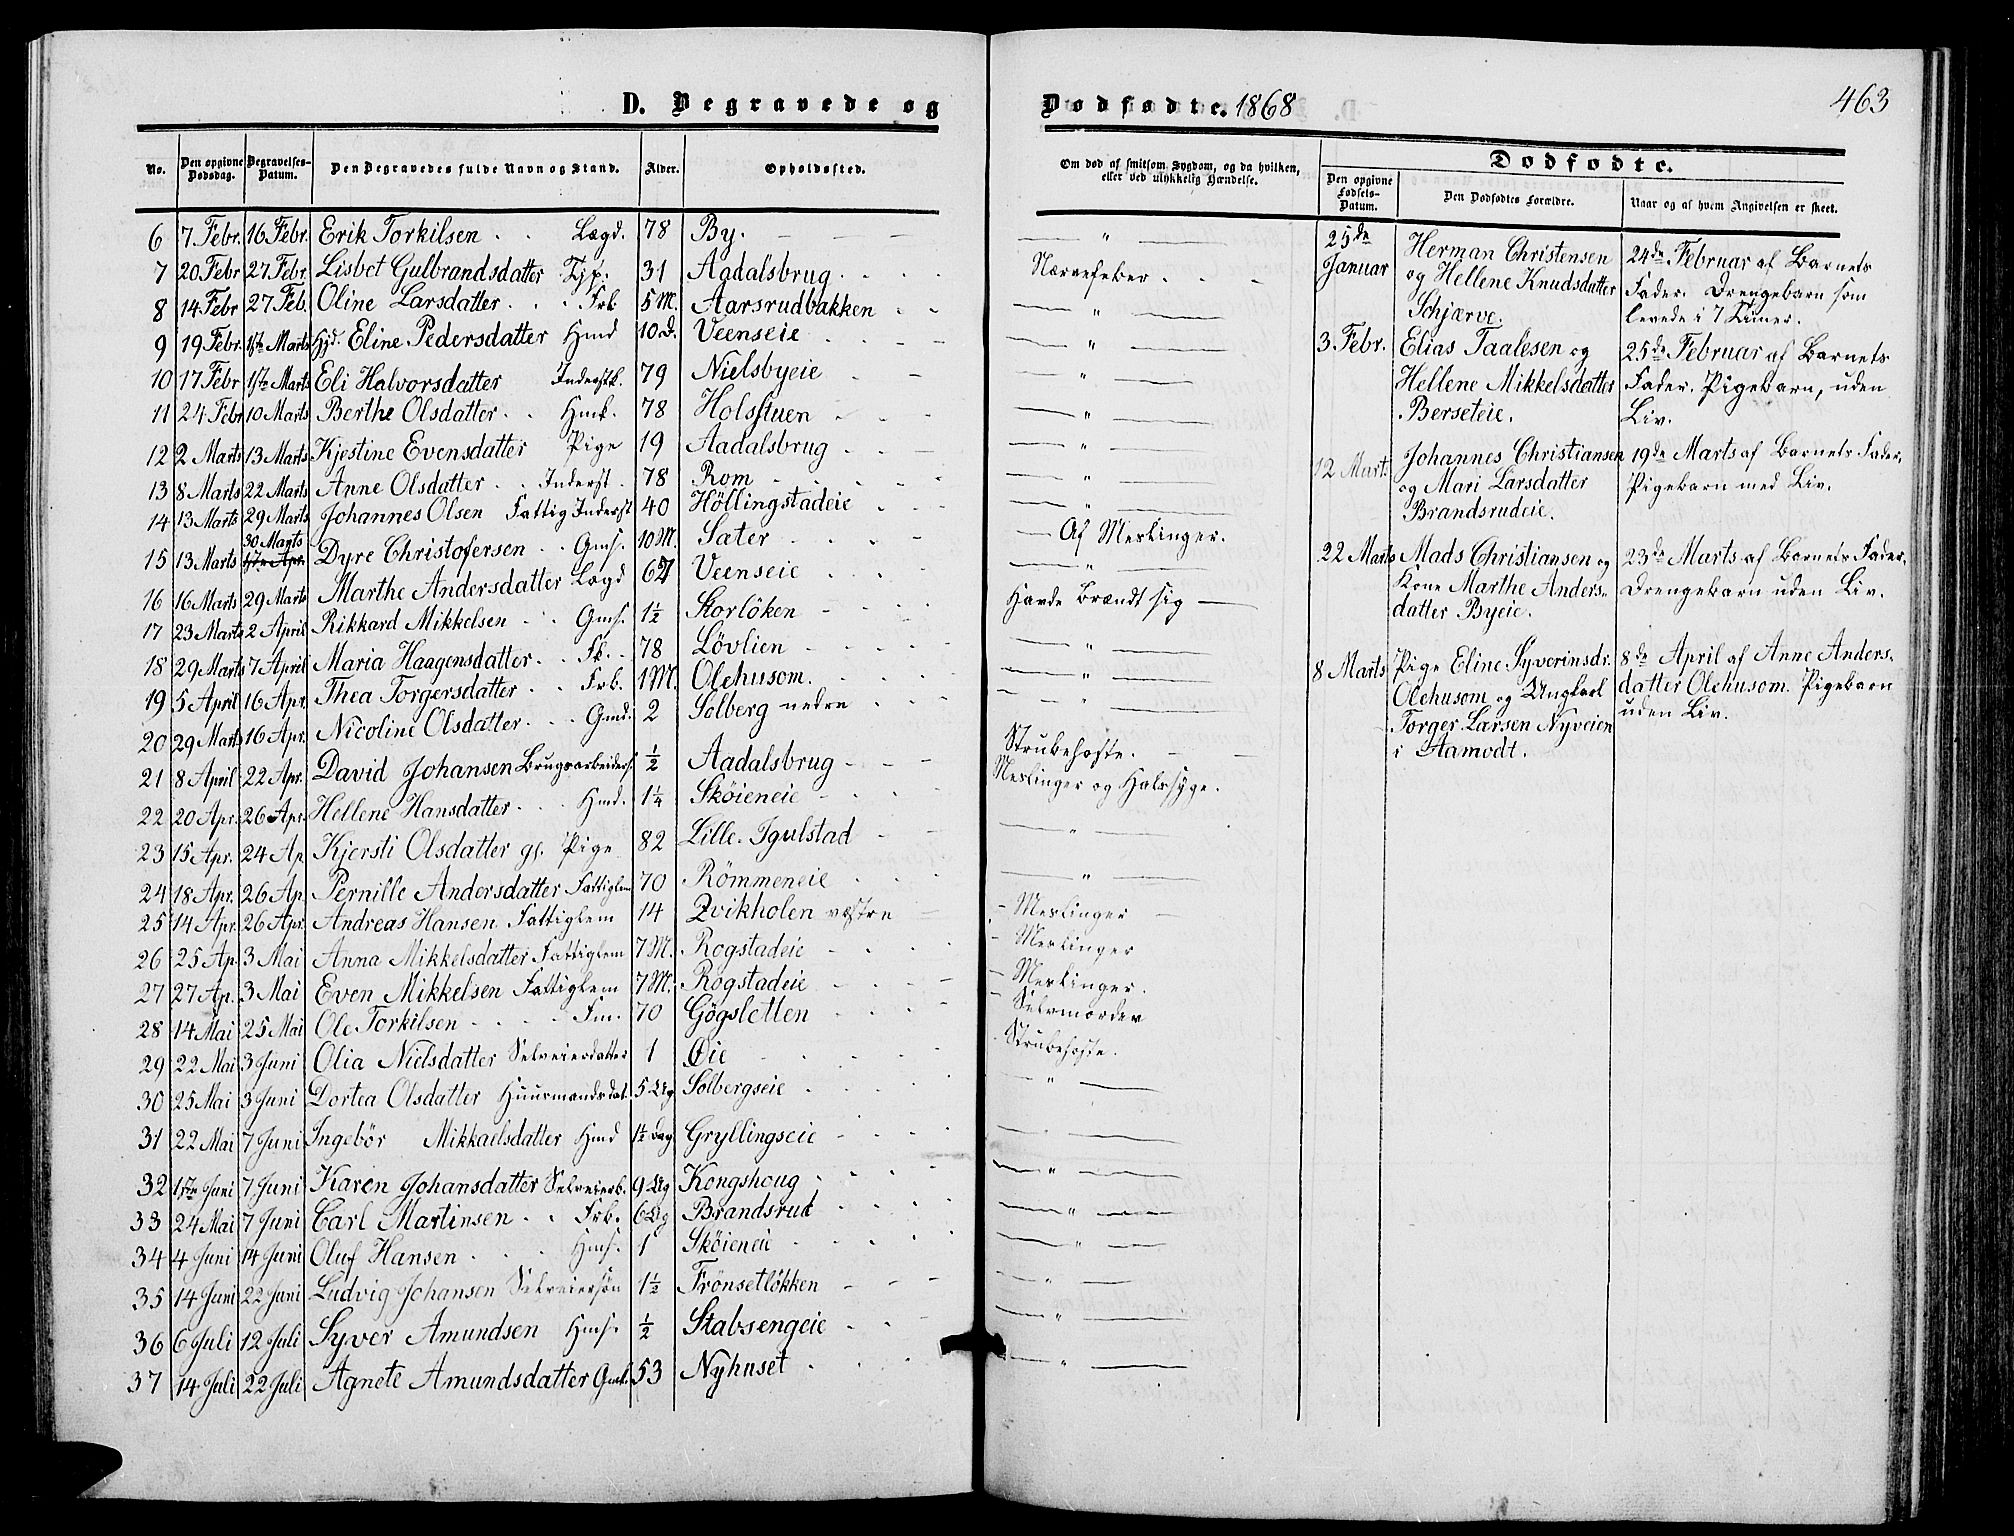 D. Begravede og
Dødfødte. 1868
463
No.
Den opgivne Dødsdag.
Begravelses-Datum.
Den Begravedes fulde Navn og Stand.
Alder.
Opholdssted.
Om død af smitsom Sygdom, og da hvilken, eller ved ulykkelig Hændelse.
Dødfødte.
Den opgivne Fødsels-Datum.
Den Dødfødtes Forældre.
Naar og af hvem Angivelsen er skeet.
6 7 Febr. 16 Febr. Erik Torkilsen . . Lægd. 78 By. "
7 20 Febr 27 Febr. Lisbet Gulbrandsdatter Tjp. 31 Aadalsbrug Nervefeber
8 14 Febr 27 Feb. Oline Larsdatter . . Frb 5 M. Aarsrudbakken "
9 19 Febr. 1ste Marts Hjd. Eline Pedersdatter Hmd 10 D. Veenseie "
10 17 Febr 1ste Marts Eli Halvorsdatter Inderstk. 79 Nielsbyeie "
11 24 Febr 10 Marts Berthe Olsdatter . . Hmk. 78 Holsstuen "
12 2 Marts 13 Marts Kjestine Evensdatter Pige 19 Aadalsbrug "
13 8 Marts 22 Marts Anne Olsdatter . . Inderst . 78 Rom "
14 13 Marts 29 Marts Johannes Olsen Fattig Inderst 40 Höllingstadeie "
15 13 Marts 30 Marts 17de Apr. Dyre Christofersen . . Gms. 10 M. Sater Af Meslinger.
16 16 Marts 29 Marts Marthe Andersdatter Lægd 67 Veenseie "
17 23 Marts 2 April Rikkard Mikkelsen . . Gms. 1½ Storlöken Havde Brændt sig
18 29 Marts 7 April Maria Haagensdatter . . Fk. 78 Lövlien "
19 5 April 16 Apr. Thea Torgersdatter . . Frb. 1 M. Olehusom. "
20 29 Marts 16 Apr. Nicoline Olsdatter . . Gmd. 2 Solberg nedre "
21 8 April 22 Apr. David Johansen Brugsarbeiders. ½ Aadalsbrug Strubehoste.
22 20 Apr. 26 Apr. Hellene Hansdatter . . Hmd. 1¼ Sköieneie Meslinger og Halssyge.
23 15 Apr. 24 Ap Kjersti Olsdatter gl. Pige 82 Lille Igulstad "
24 18 Apr. 26 Ap. Pernille Andersdatter Fattiglem 70 Römmeneie "
25 14 Apr. 26 Apr. Andreas Hansen Fattiglem 14 Qvikholen vestre Meslinger
26 25 Ap 3 Mai Anna Mikkelsdatter Fattiglem 7 M. Rogstadeie Meslinger
27 27 Ap. 3 Mai Even Mikkelsen Fattiglem 7 M. Rogstadeie Meslinger.
28 14 Mai 25 Mai Ole Torkilsen . . Fm. 70 Gögsletten Selvmorder
29 22 Mai 3 Juni Olia Nielsdatter Selveierdatter 1 Øie Strubehoste.
30 25 Mai 3 Juni Dortea Olsdatter Huusmandsdat. 5 Ug Solbergseie "
31 22 Mai 7 Juni Ingebör Mikkaelsdatter Hmd 1½ Dag Gryllingseie "
32 1ste Juni 7 Juni Karen Johansdatter Selveierb. 9 Ug Kongshoug "
33 24 Mai 7 Juni Carl Martinsen . . Frb. 6 Ug Brandsrud "
34 4 Juni 14 Juni Oluf Hansen . . Hms. 1 Sköieneie "
35 14 Juni 22 Juni Ludvig Johansen Selveiersön 1½ Frönsetlökken "
36 6 Juli 12 Juli Syver Amundsen Hms. ½ Stabsengeie "
37 14 Juli 22 Juli Agnete Amundsdatter Gmk. 53 Nyhuset "
25de Januar
Herman Christensen
og Hellene Knudsdatter
Schjærve.
24de Februar af Barnets
Fader. Drengebarn som
levede i 7 Timer.
3 Febr.
Elias Taalesen og
Hellene Mikkelsdatter
Berseteie.
25de Februar af Barnets
Fader. Pigebarn, uden
Liv.
12 Marts
Johannes Christiansen
og Mari Larsdatter
Brandsrudeie.
19de Marts af Barnets Fader.
Pigebarn med Liv.
22 Marts
Mads Christiansen og
Kone Marthe Anders-
datter Byeie.
23de Marts af Barnets Fader.
Drengebarn uden Liv.
8 Marts
Pige Eline Syverinsdr.
Olehusom og Ungkarl
Torger Larsen Nyveien
i Aamodt.
8de April af Anne Anders-
datter Olehusom. Pigebarn
uden Liv.